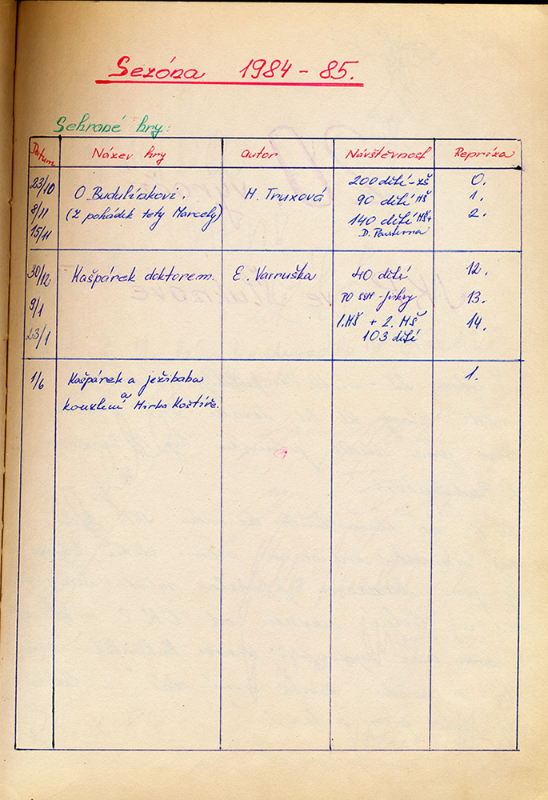 Sezóna 1984 - 85.
Sehrané hry:
Datum Název hry autor Návštěvnost Repríza
23/10 O Budulínkovi. M. Truxová 200 dětí - ZŠ 0.
8/11 (z pohádek tety Marcely) 90 dětí MŠ 1.
15/11 140 dětí MŠ+ 2.
D.
30/12 Kašpárek doktorem E. Vavruška 40 dětí 12.
9/1 PO SSM - 13.
23/1 1. MŠ + 2. MŠ 14.
103 dětí
1/6 Kašpárek a ježibaba 1.
a
kouzlení Mirka